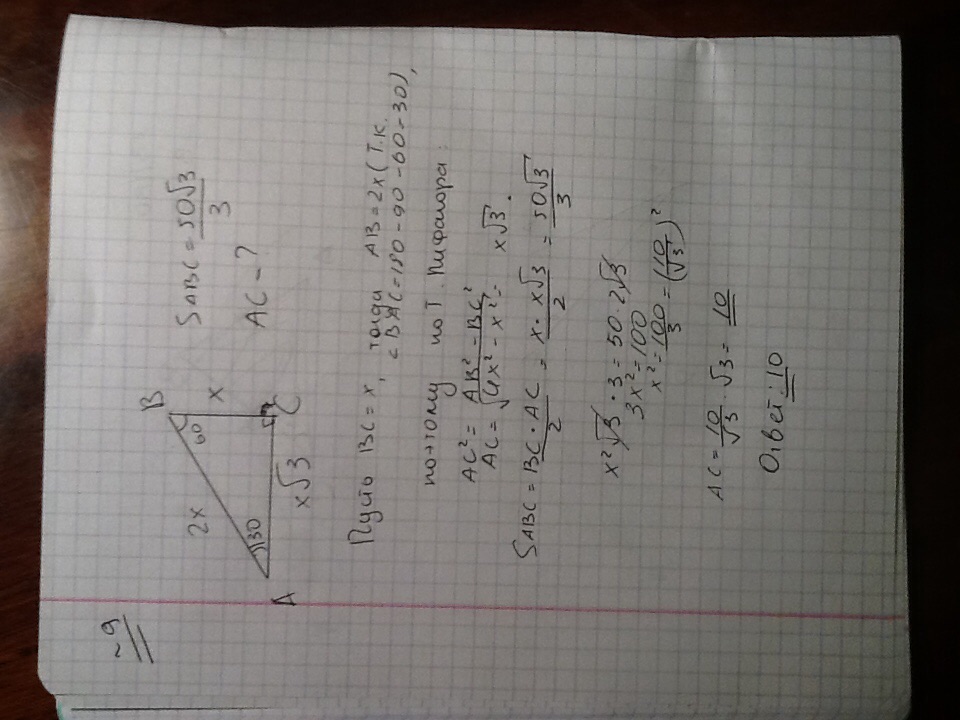 ~9
B
60
x
2x
30
A
C
x√3
S ABC = 50√3 / 3
AC - ?
Пусть BC = x, тогда AB = 2x (т.к.
∠BAC = 180 - 90 - 60 = 30),
поэтому по т. Пифагора:
AC² = AB² - BC²
AC = √4x² - x² = x√3.
S ABC = BC · AC / 2 = x · x√3 / 2 = 50√3 / 3
x²√3 · 3 = 50 · 2√3
3x² = 100
x² = 100 / 3 = (10 / √3)²
AC = 10 / √3 · √3 = 10
Ответ: 10